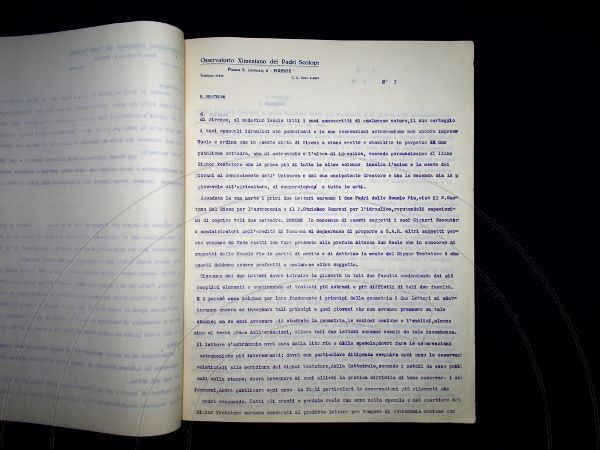 Osservatorio Ximeniano dei Padri Scolopi
Piazza S. Lorenzo, 6 - FIRENZE
N° 3
di Firenze, al medesimo lascia tutti i suoi manoscritti di qualunque natura, il suo carteggio
i suoi opuscoli idraulici non pubblicati e le sue osservazioni astronomiche non ancora impresse
Vuole e ordina che in questa città di Firenze siano erette e stabilite in perpetuo due
pubbliche cattedre, una di astronomia e l'altra di idraulica, essendo persuasissimo il
Signor Testatore che la prima più di tutte le altre scienze innalza l'animo e la mente dei
giovani al conoscimento dell'Universo e del suo onnipotente Creatore e che la seconda sia la più
giovevole all'agricoltura, al commercio e a tutte le arti.
Accaduta la sua morte i primi due lettori saranno i due Padri delle Scuole Pie, cioè il P.
del Ricco per l'astronomia e il P. Stanislao Canovai per l'idraulica, reputandoli capacissimi
di coprire tali due cattedre. In mancanza di questi soggetti i suoi Signori
e amministratori dell'eredità di Toscana si degneranno di proporre a S.A.R. altri soggetti perchè
vengano da Esso eletti con fare presente alla prefata Altezza Sua Reale che in concorso di
soggetti delle Scuole Pie in parità di merito e di dottrina la mente del Signor Testatore è che
questi debbano essere preferiti a qualunque altro soggetto.
Ciascuno dei due lettori dovrà istruire la gioventù in tali due facoltà cominciando dai più
semplici elementi e continuando ai trattati più astrusi e più difficili di tali due facoltà.
E perchè esse esigono per loro fondamento i principi della geometria i due lettori si adat-
teranno ancora ad insegnare tali principi a quei giovani che non avranno premesso un tale
studio; ma se essi avessero già studiato la geometria, le sezioni coniche e l'analisi, almeno
sino al terzo grado dell'equazioni, allora tali due lettori saranno esenti da tale incombenza.
Il lettore d'astronomia avrà cura della libreria e della specola; dovrà fare le osservazioni
astronomiche più interessanti; dovrà con particolare diligenza eseguire ogni anno le osservazioni
solstiziali alla meridiana del Signor Testatore, della Cattedrale, secondo i metodi da esso pubbli
cati colle stampe; dovrà insegnare ai suoi allievi la pratica difficile di bene osservare i
fenomeni, dovrà pubblicare ogni anno in fogli particolari le osservazioni più rilevanti che
andrà eseguendo. Tutti gli orologi a pendolo reale che sono nella specola e nel quartiere del
Signor Testatore saranno consegnati al predetto lettore pro tempore di astronomia assieme con